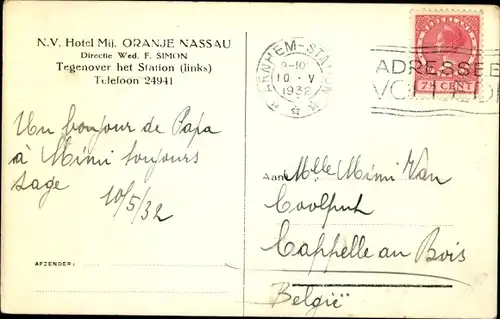 N.V. Hotel Mij. ORANJE NASSAU
Directie Wed. F. SIMON
Tegenover het Station (links)
Telefoon 24941
Un bonjour de Papa
à Mimi toujours
sage
10/5/32
AFZENDER:
ARNHEM-STATION
9-10
10 · V
1932
NEDERLAND
7½ CENT
ADRESSEE
Aan Mlle Mimi Van
Coolput
Cappelle au Bois
België